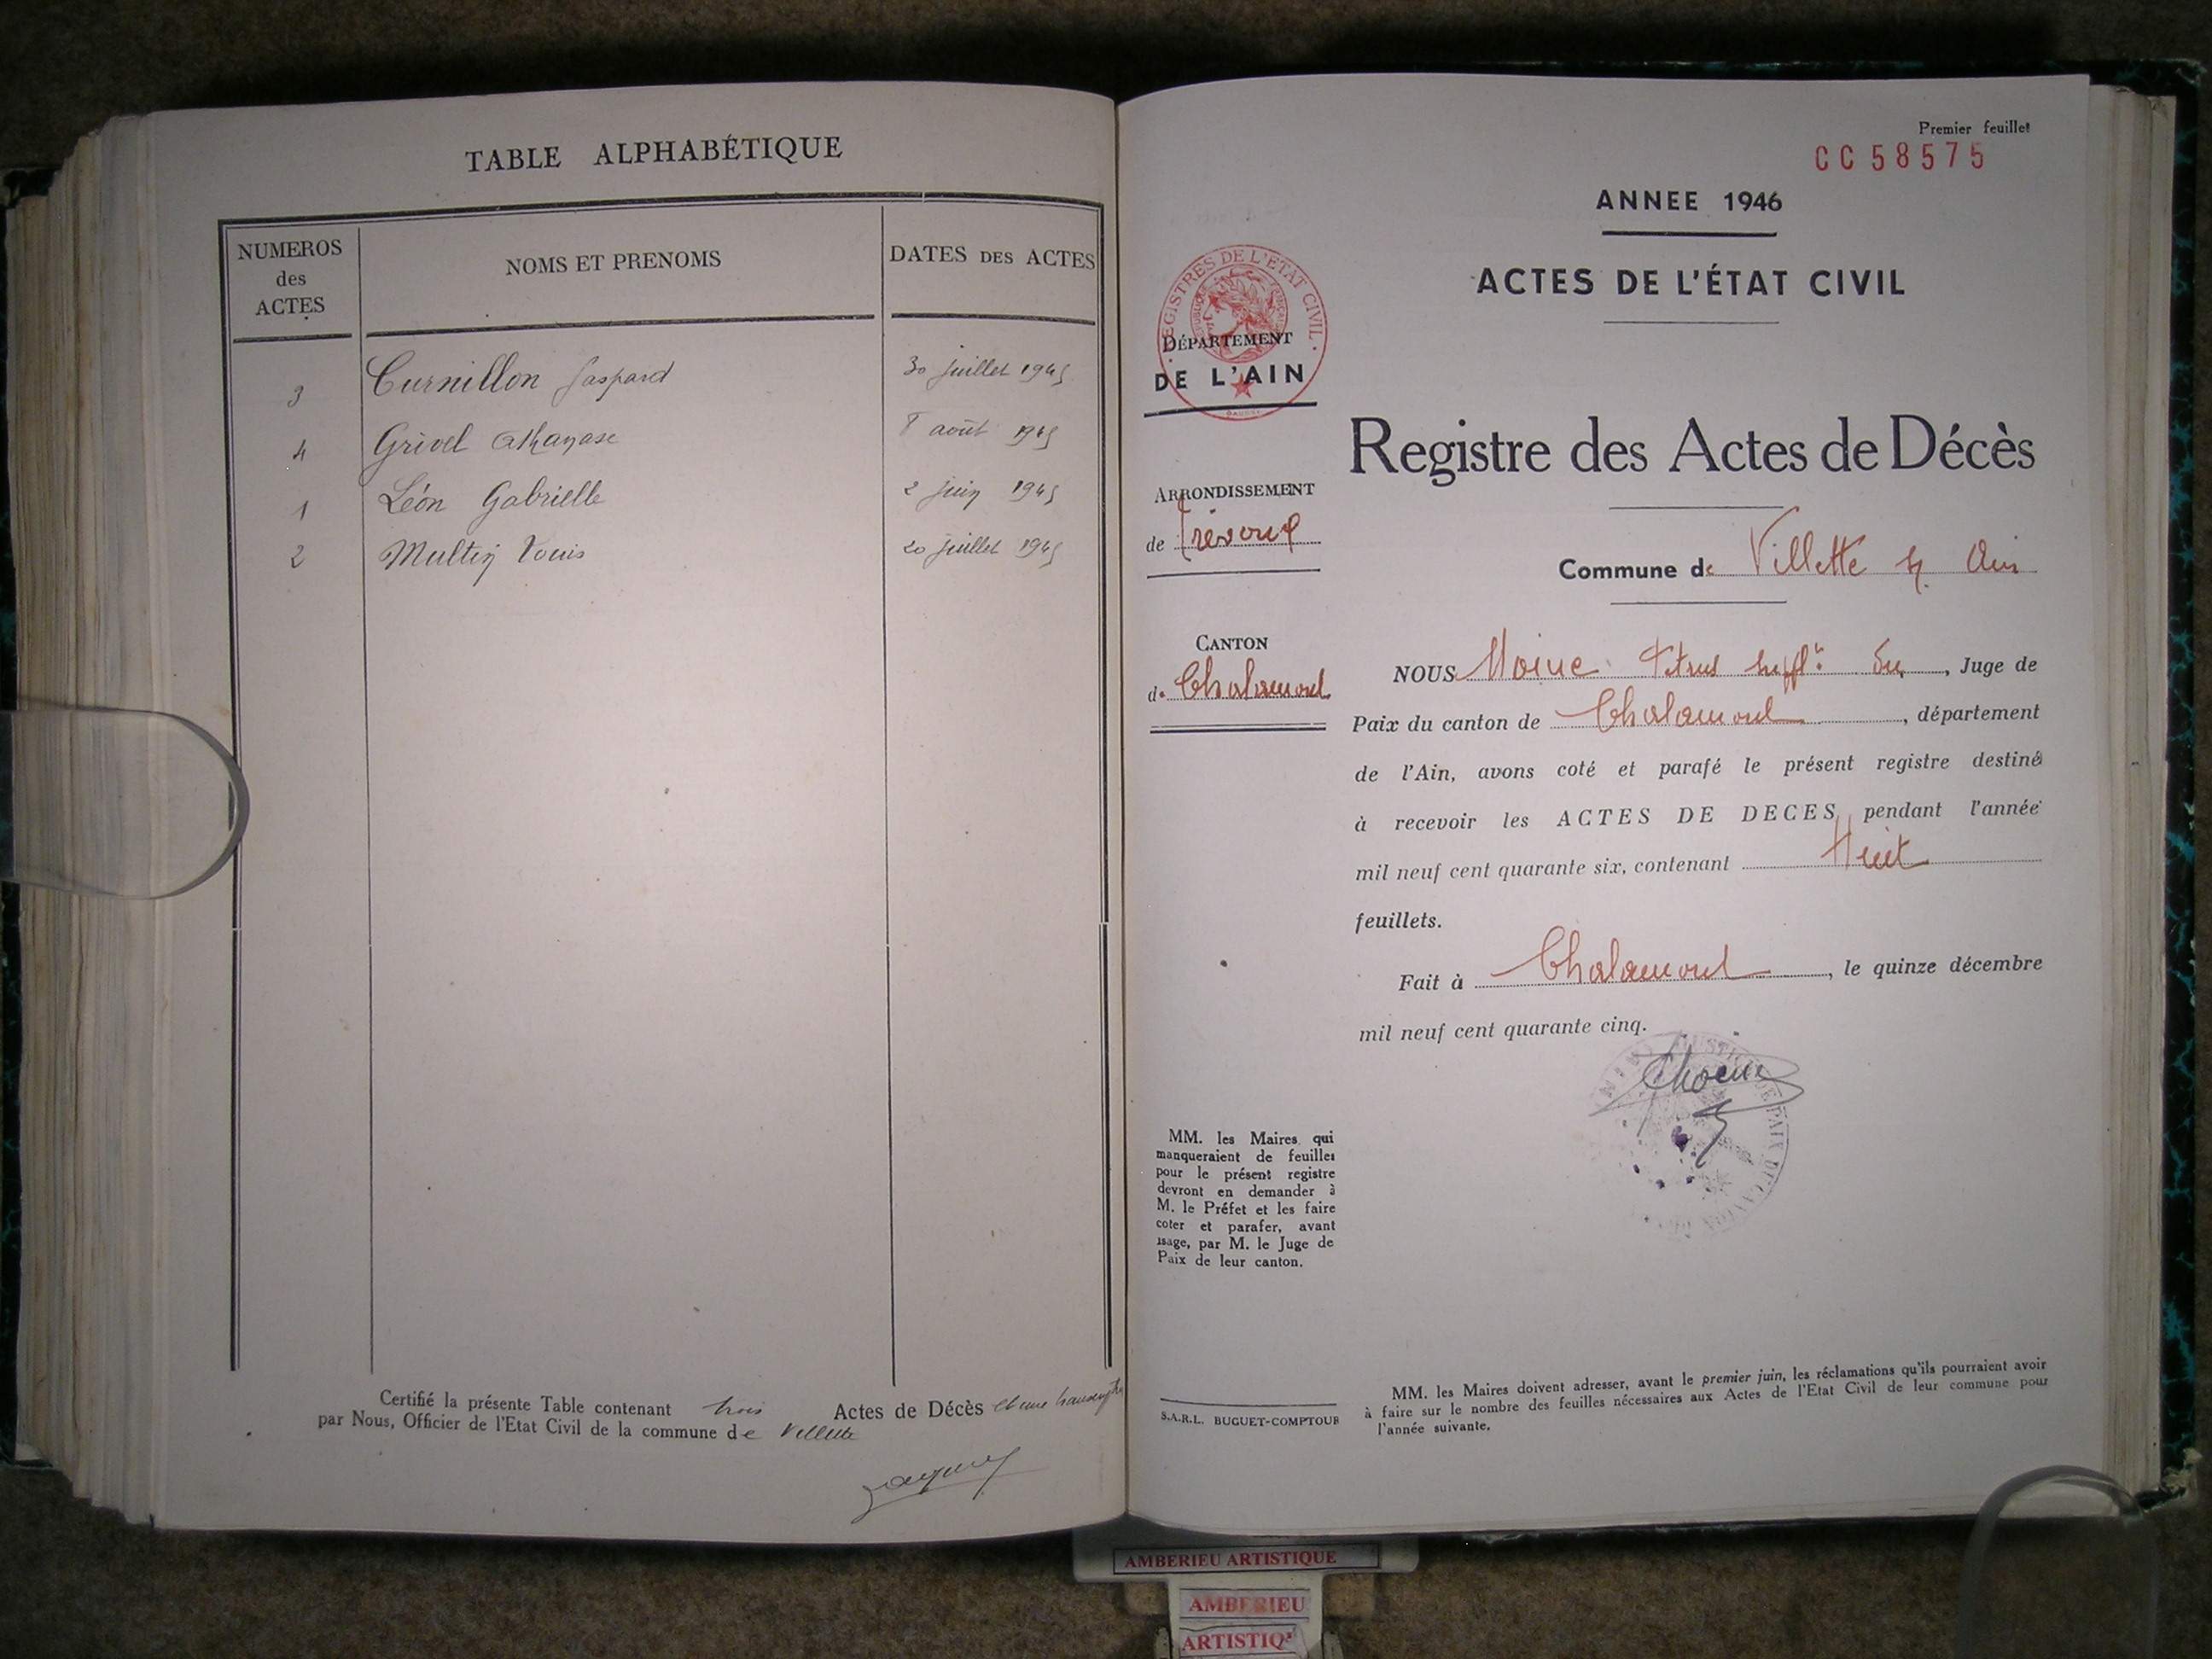 TABLE ALPHABÉTIQUE
NUMEROS des ACTES
NOMS ET PRENOMS
DATES DES ACTES
3 Curnillon Gaspard 30 juillet 1945
4 Grivel Athanase 8 août 1945
1 Léon Gabrielle 2 juin 1945
2 Multin Louis 20 juillet 1945
Certifié la présente Table contenant trois Actes de Décès et une
par Nous, Officier de l'Etat Civil de la commune de Villette
Premier feuillet
CC58575
ANNEE 1946
ACTES DE L'ÉTAT CIVIL
REGISTRES DE L'ETAT CIVIL
DÉPARTEMENT
DE L'AIN
Registre des Actes de Décès
ARRONDISSEMENT
de Trévoux
Commune de Villette s/ Ain
CANTON
de Chalamont
NOUS Moine suppl. du, Juge de
Paix du canton de Chalamont, département
de l'Ain, avons coté et parafé le présent registre destiné
à recevoir les ACTES DE DECES pendant l'année
mil neuf cent quarante six, contenant Huit
feuillets.
Fait à Chalamont, le quinze décembre
mil neuf cent quarante cinq.
Moine
MM. les Maires qui
manqueraient de feuilles
pour le présent registre
devront en demander à
M. le Préfet et les faire
coter et parafer, avant
usage, par M. le Juge de
Paix de leur canton.
S.A.R.L. BUGUET-COMPTOUR
MM. les Maires doivent adresser, avant le premier juin, les réclamations qu'ils pourraient avoir
à faire sur le nombre des feuilles nécessaires aux Actes de l'Etat Civil de leur commune pour
l'année suivante.
AMBERIEU ARTISTIQUE
AMBERIEU
ARTISTIQ